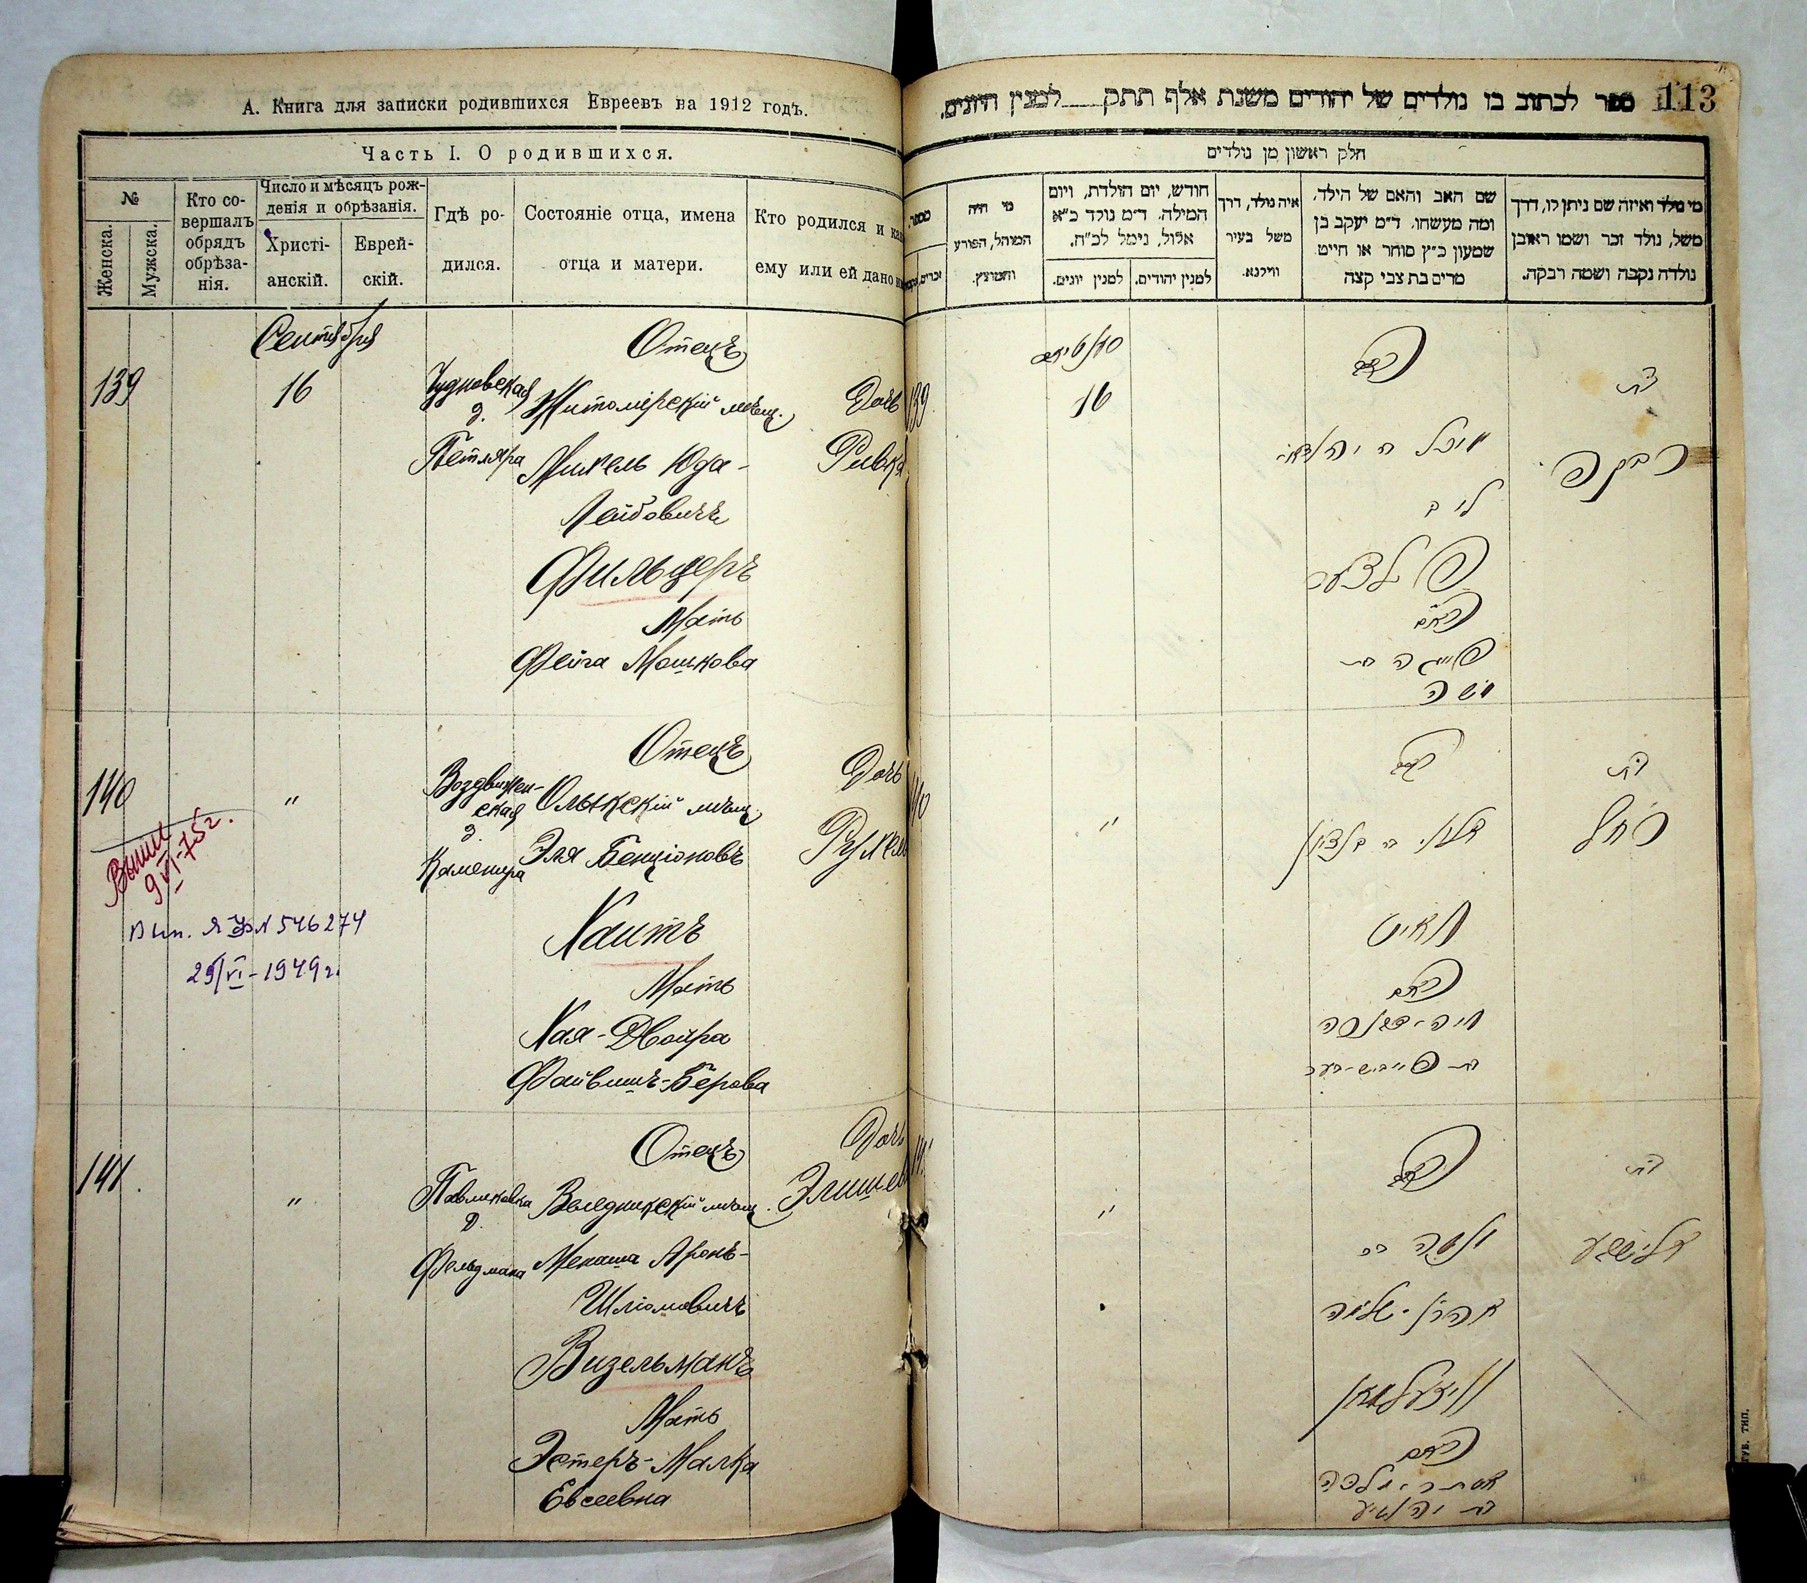 А. Книга для записки родившихся Евреевъ на 1912 годъ.
Часть I. О родившихся.
№
Женска.
Мужска.
Кто со-
вершалъ
обрядъ
обрѣза-
нія.
Число и мѣсяцъ рож-
денія и обрѣзанія.
Христі-
анскій.
Еврей-
скій.
Гдѣ ро-
дился.
Состояніе отца, имена
отца и матери.
Кто родился и как
ему или ей дано
Сентября
139
16
Чудновская
д.
Петляра
Отецъ
Житомірскій мѣщ.
Михель Юда-
Лейбовичъ
Фильцеръ
Мать
Фейга Мошкова
Дочь
Ривка
140
"
Воздвижен-
ская
д.
Каменира
Отецъ
Олыкскій мѣщ.
Эля Бенціоновъ
Хаитъ
Мать
Хая-Двойра
Файвишъ-Берова
Дочь
Рухель
9/VI-75г.
Вып. ЯУ № 546274
29/VI-1949г.
141.
"
Павликовка
д.
Фельдмана
Отецъ
Веледникскій мѣщ.
Менаша Аронъ-
Шліомовичъ
Визельманъ
Мать
Эстеръ-Малка
Евсеевна
Дочь
Элишев
113
ספר לכתוב בו נולדים של יהודים משנת אלף תתק למנין היונים.
חלק ראשון מן נולדים
מספר
זכרים
מי היה
המוהל, הפורע
והמוצץ.
חודש, יום הולדת, ויום
המילה. ד"מ נולד כ"א
אלול, נימל לכ"ח.
למנין יונים.
למנין יהודים.
איה נולד, דרך
משל בעיר
ווילנא.
שם האב והאם של הילד,
ומה מעשהו. ד"מ יעקב בן
שמעון כ"ץ סוחר או חייט
מרים בת צבי קצה
מי נולד ואיזה שם ניתן לו, דרך
משל, נולד זכר ושמו ראובן
נולדה נקבה ושמה רבקה.
139
16
האב
מיכל יהודא
ליב
פילצער
האם
פייגה בת
משה
בת
רבקה
140
"
האב
אלי' ב בנציון
חאיט
האם
חיה-דבורה
בת פייביש-בער
בת
רחל
141
"
האב
מנשה בר
אהרן-שלמה
וויזעלמאן
האם
אסתר-מלכה
בת יהושיע
בת
אלישבע